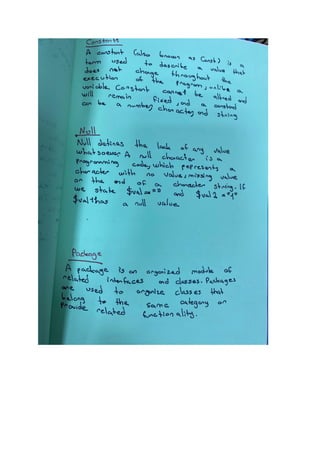 Constants
A constant (also known as Const) is a
term used to describe a value that
does not change throughout the
execution of the program, unlike a
variable, Constant cannot be altred and
will remain fixed, and a constand
can be a number, character, and string
Null
Null defines the lack of any value
whatsoever. A null character is a
programming code, which represents a
character with no value, missing value
or the end of a character string. If
we state $val="" and $val1=""
$val1has a null value.
Package
A package is an organized module of
related interfaces and classes. Packages
are used to organise classes that
belong to the same category or
provide related functionality.